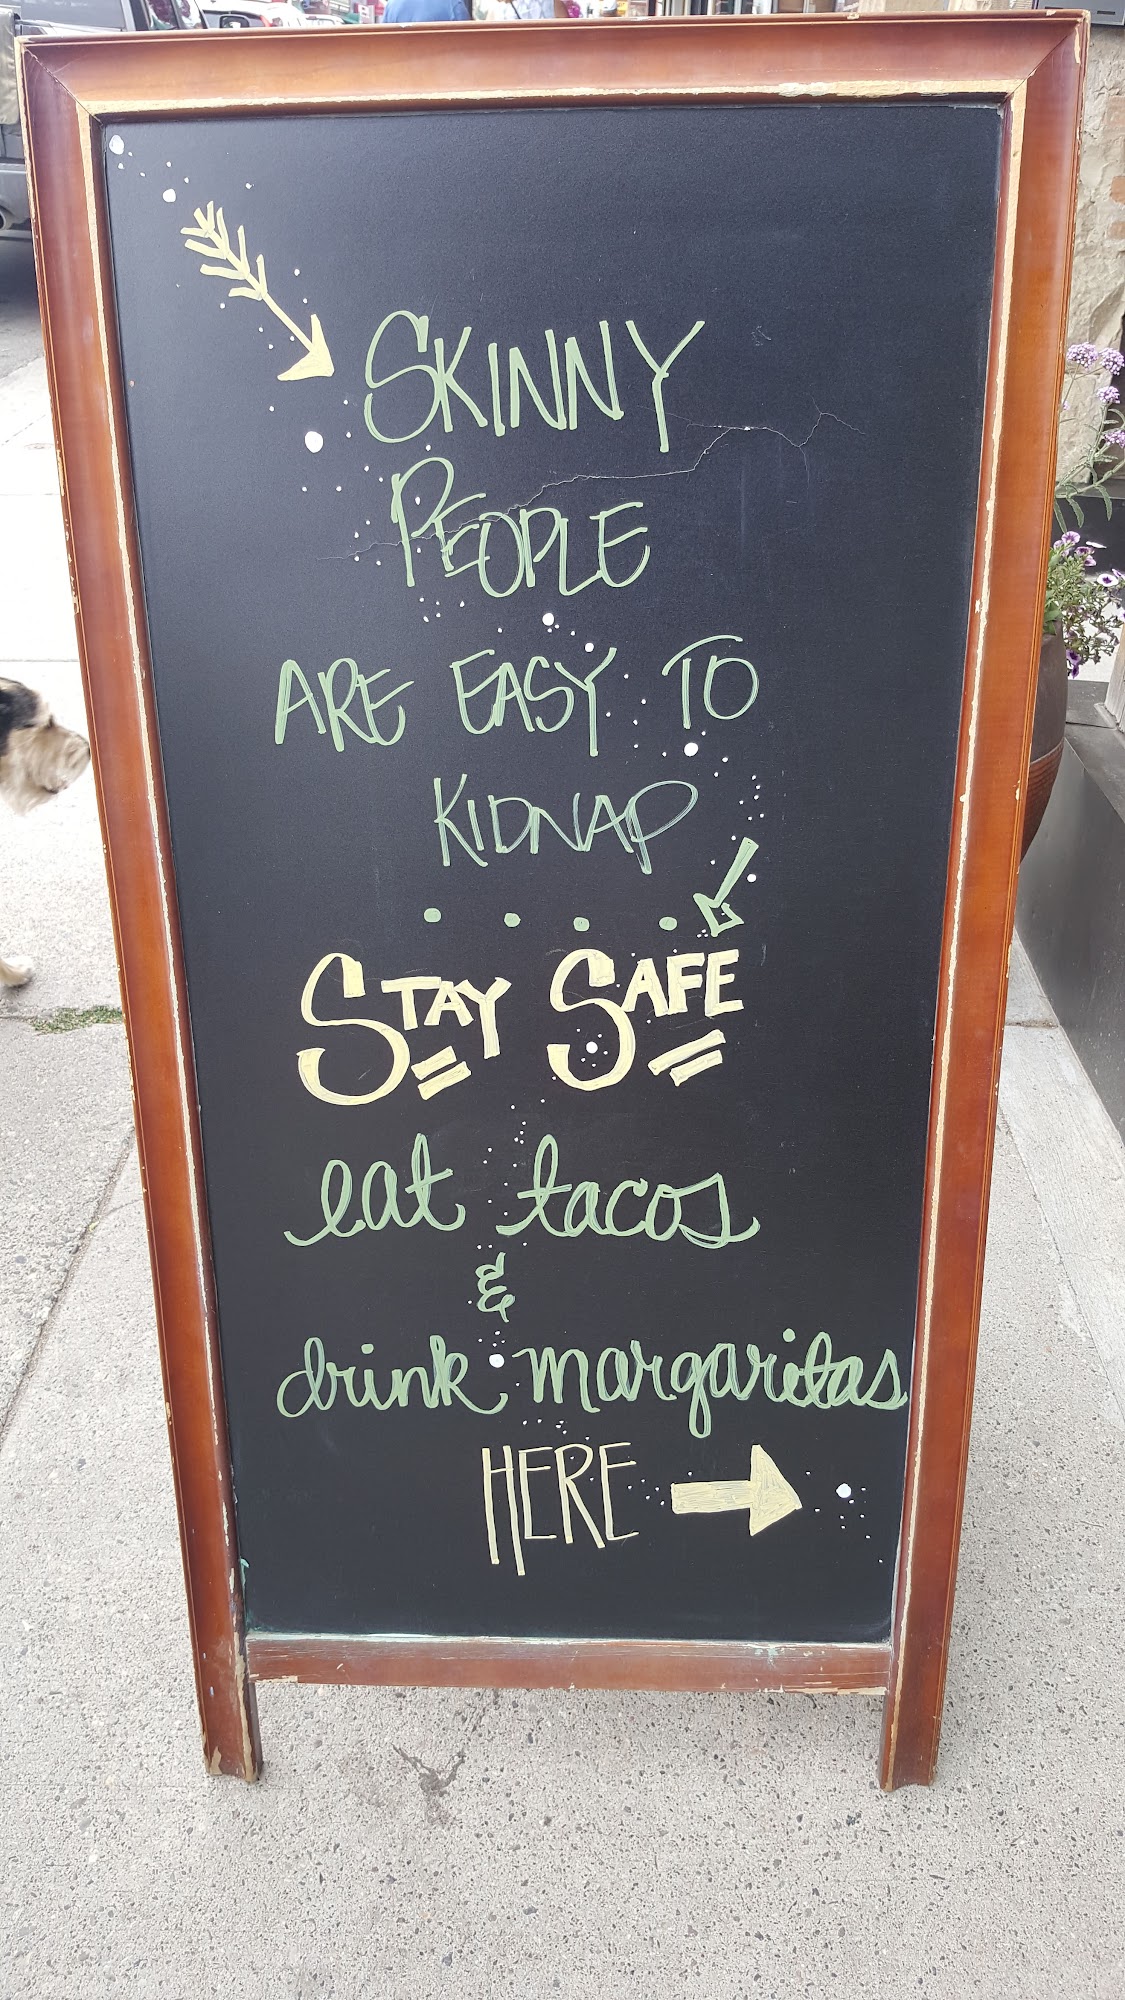 SKINNY
PEOPLE
ARE EASY TO
KIDNAP
....
STAY SAFE
eat tacos
&
drink margaritas
HERE →